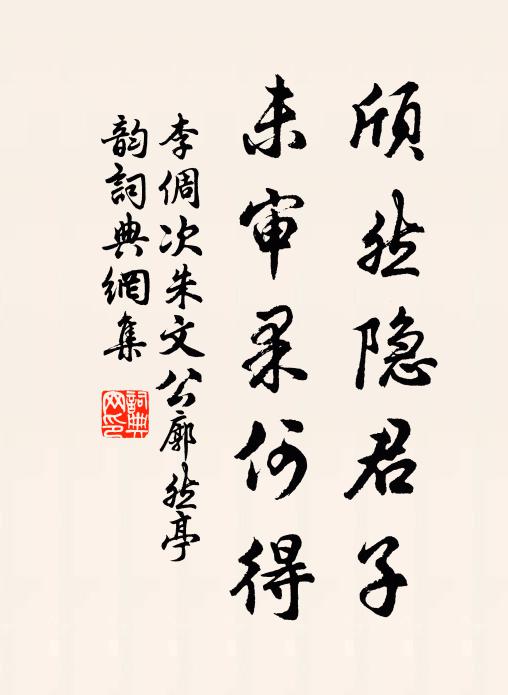 颀然隐君子
未审果何得
李倜次朱文公廓然亭
韵詞典網集
詞典网印